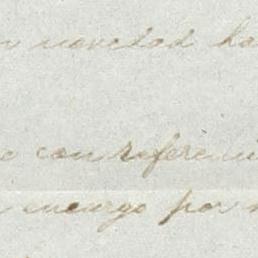 novedad ha
con referenci
encargo por